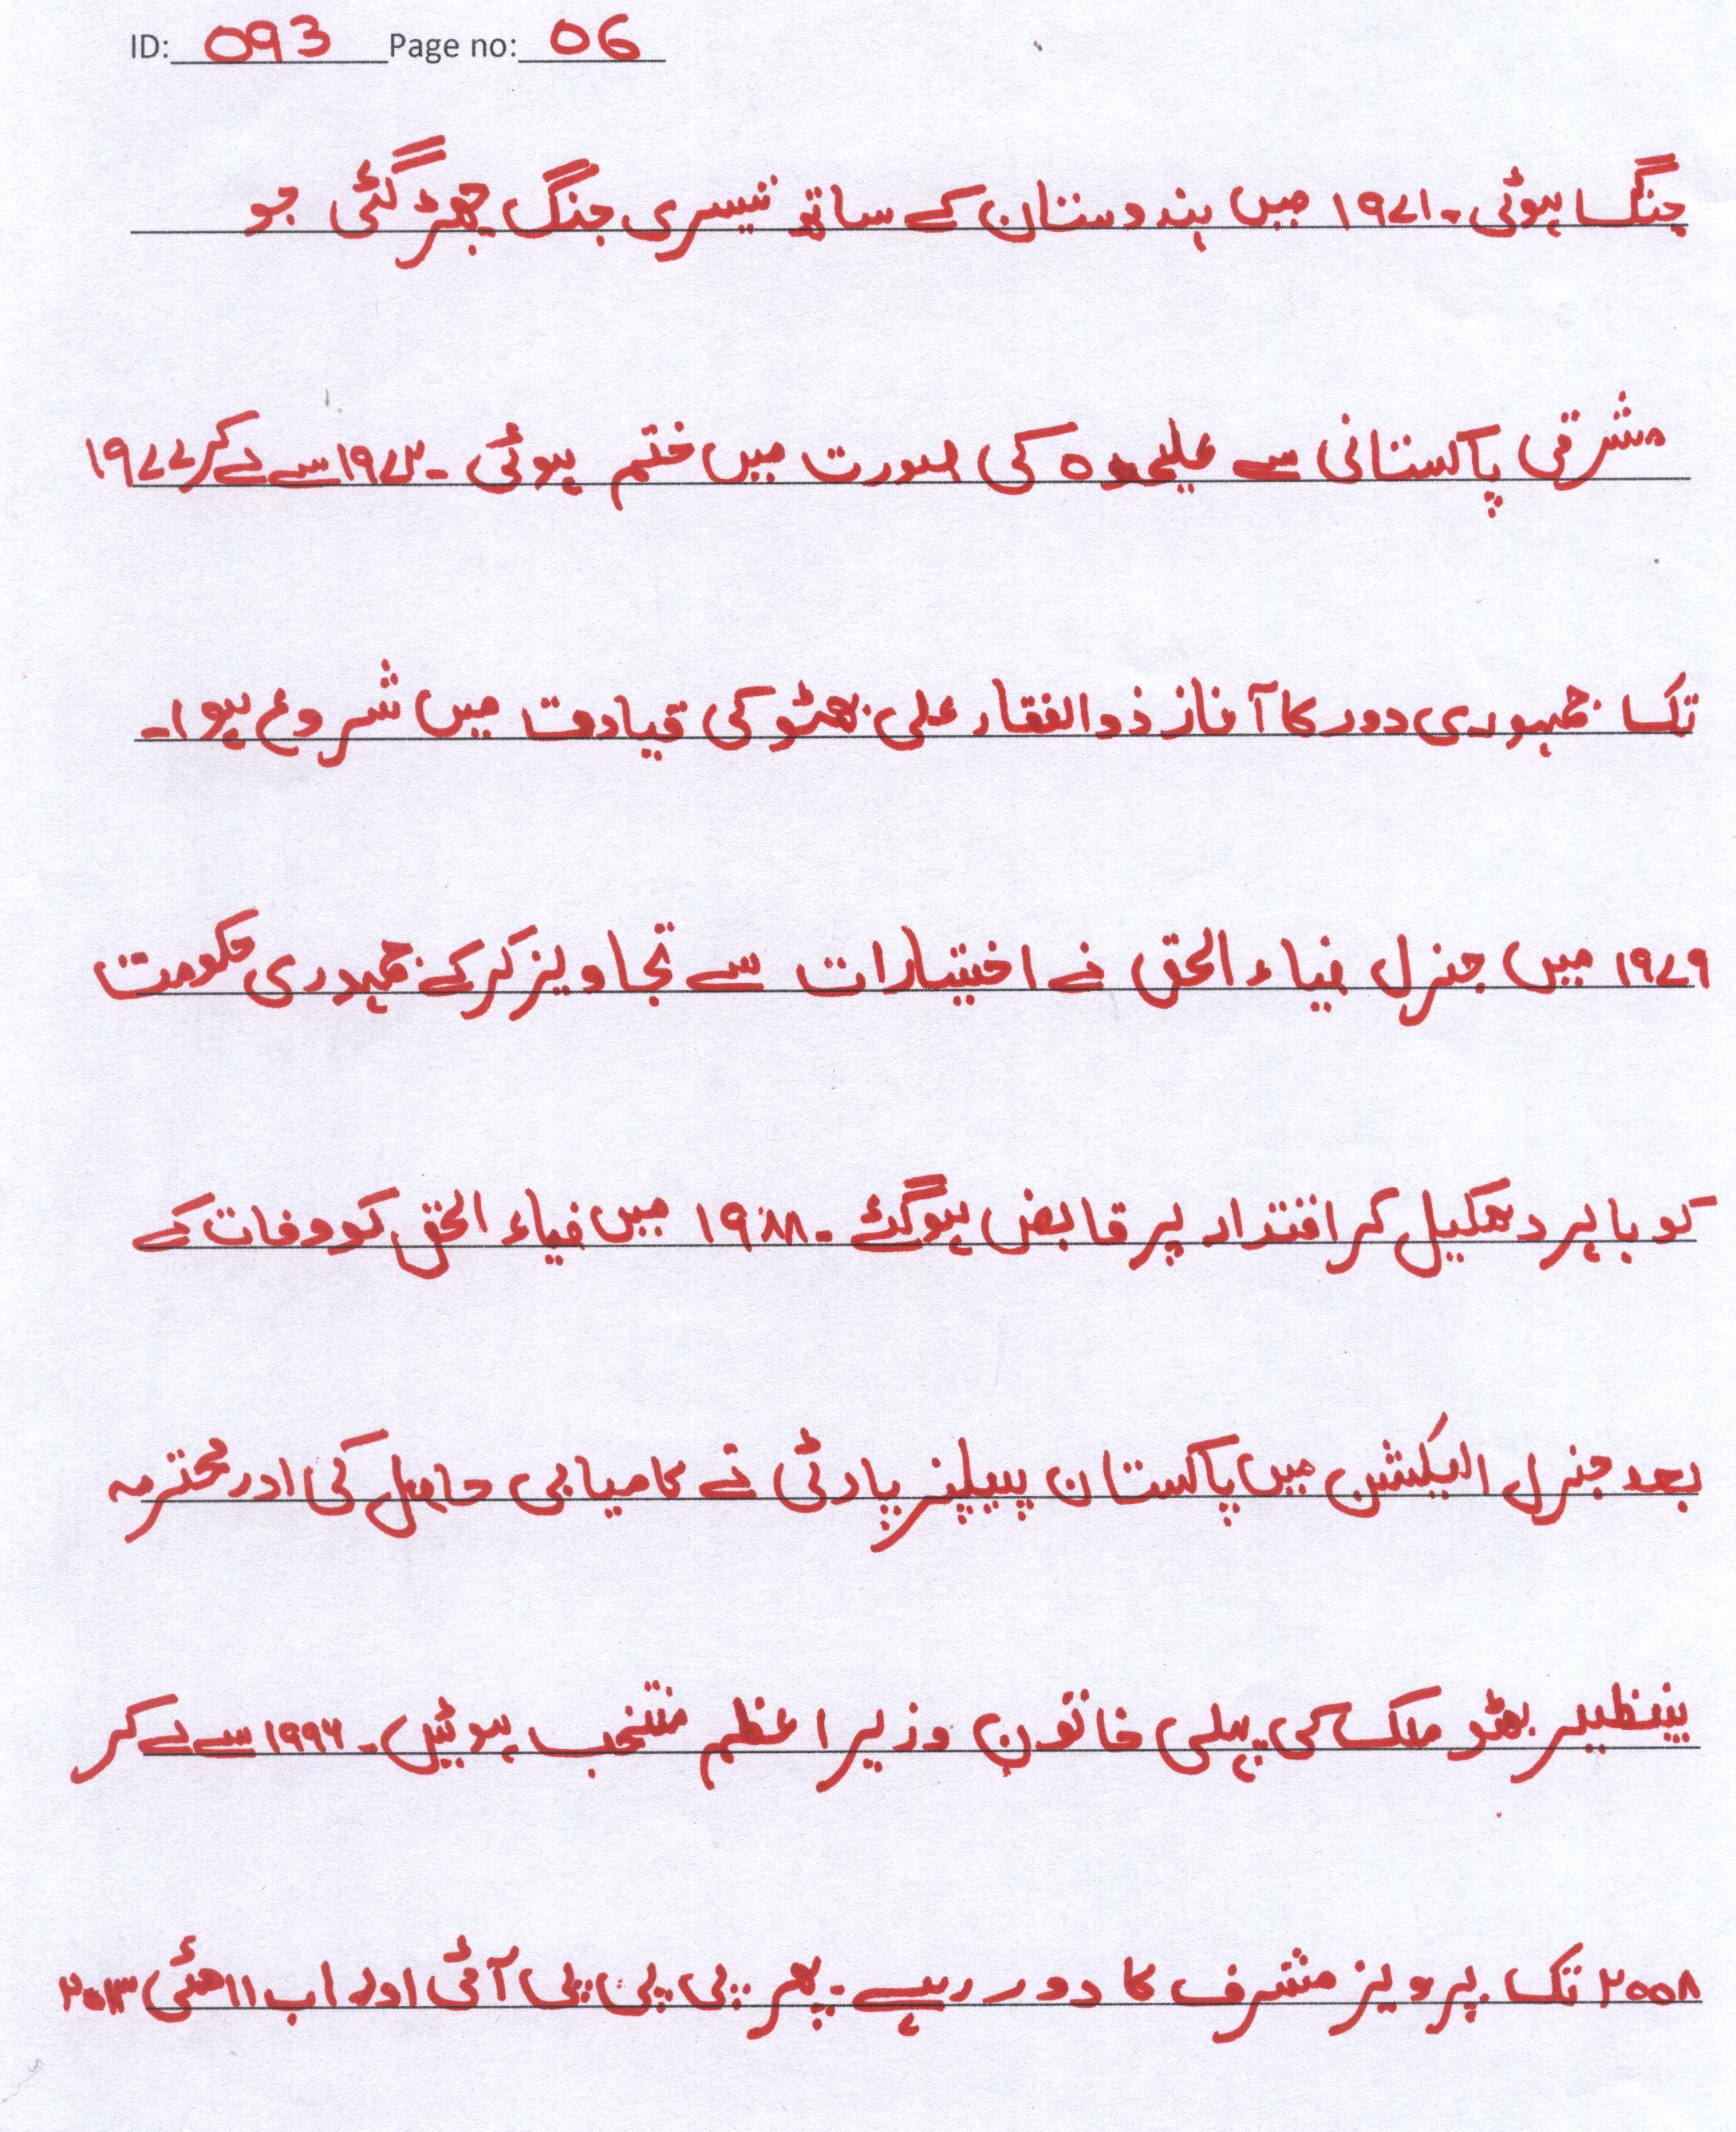 ID: 093 Page no: 06
جنگ ہوئی۔ ۱۹۷۱ میں ہندوستان کے ساتھ تیسری جنگ چھڑ گئی جو
مشرقی پاکستانی سے علیحدہ کی صورت میں ختم ہوئی ۔ ۱۹۷۲ سے لے کر ۱۹۷۷
تک جمہوری دور کا آغاز ذوالفقار علی بھٹو کی قیادت میں شروع ہوا۔
۱۹۷۹ میں جنرل ضیاء الحق نے اختیارات سے تجاویز کرکے جمہوری حکومت
کو باہر دھکیل کر اقتدار پر قابض ہوگئے ۔ ۱۹۸۸ میں ضیاء الحق کو وفات کے
بعد جنرل الیکشن میں پاکستان پیپلز پارٹی نے کامیابی حاصل کی اور محترمہ
بینظیر بھٹو ملک کی پہلی خاتون وزیر اعظم منتخب ہوئیں۔ ۱۹۹۶ سے لے کر
۲۰۰۸ تک پرویز مشرف کا دور رہے۔ پھر پی پی پی آئی اور اب ۱۱ مئی ۲۰۱۳